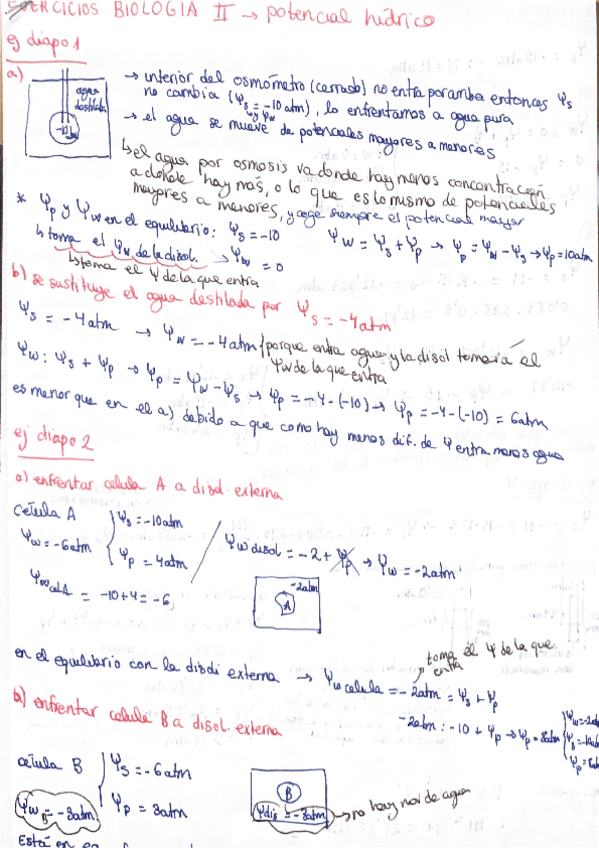 EJERCICIOS BIOLOGIA II → potencial hídrico
ej diapo 1
a)
agua
destilada
→ interior del osmómetro (cerrado) no entra
entonces Ψs
no cambia (Ψs = -10 atm), lo enfrentamos a agua pura
→ el agua se mueve de potenciales mayores a menores
↳ el agua por osmosis va donde hay menos concentración
a donde hay más, o lo que es lo mismo de potenciales
mayores a menores, y coge siempre el potencial mayor
* Ψp y Ψw en el equilibrio: Ψs = -10
Ψw = Ψs + Ψp → Ψp = Ψw - Ψs → Ψp = 10 atm
↳ toma el Ψw de la disol. → Ψw = 0
↳ toma el Ψ de la que entra
b) se sustituye el agua destilada por Ψs = -4 atm
Ψs = -4 atm → Ψw = -4 atm (porque entra agua y la disol tomaría el
Ψw de la que entra
Ψw: Ψs + Ψp → Ψp = Ψw - Ψs → Ψp = -4 - (-10) → Ψp = -4 - (-10) = 6 atm
es menor que en el a) debido a que como hay menos dif. de Ψ entra menos agua
ej diapo 2
a) enfrentar celula A a disol. externa
Celula A
Ψs = -10 atm
Ψw = -6 atm
Ψp = 4 atm
Ψw disol = -2 + Ψp → Ψw = -2 atm
Ψw cel A = -10 + 4 = -6
-2 atm
A
en el equilibrio con la disol externa → Ψw celula = -2 atm = Ψs + Ψp
toma el Ψ de la que
entra
-2 atm: -10 + Ψp → Ψp = 8 atm
Ψw = -2 atm
Ψs = -10 atm
Ψp = 8 atm
b) enfrentar celula B a disol. externa
celula B
Ψs = -6 atm
Ψp = 3 atm
Ψw B = -3 atm
B
Ψdis = -3 atm
→ no hay mov de agua
Está en